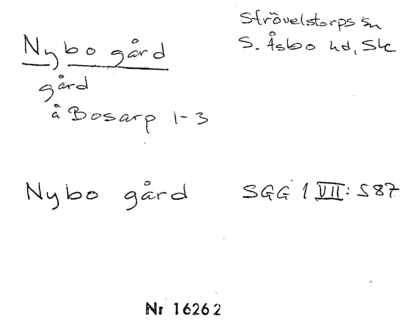 Nybo gård
Strövelstorps sn
S. Åsbo hd, Sk
gård
å Bosarp 1-3
Nybo gård
SGG 1 VII: 587
Nr 16262